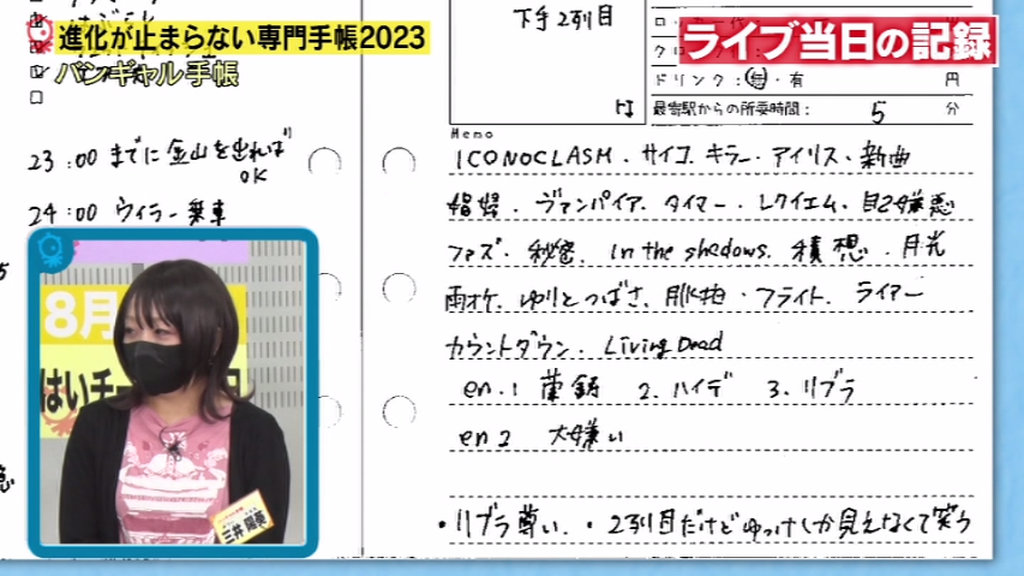 進化が止まらない専門手帳2023
バンギャル手帳
ライブ当日の記録
下手2列目
ドリンク：無・有 円
最寄駅からの所要時間： 5 分
Memo
23:00 までに金山を出れば
OK
24:00 ウィラー乗車
ICONOCLASM・サイコ・キラー・アイリス・新曲
娼婦・ヴァンパイア・タイマー・レクイエム・自己嫌悪
ファズ・秘密・In the shadows・積想・月光
雨オケ・ゆりとつばさ・脈拍・フライト・ライアー
カウントダウン・Living Dead
en.1 蘭鋳 2.ハイデ 3.リブラ
en2 大嫌い
・リブラ尊い ・2列目だけどゆっけしか見えなくて笑う
8月
はいチー
三井 陽葵